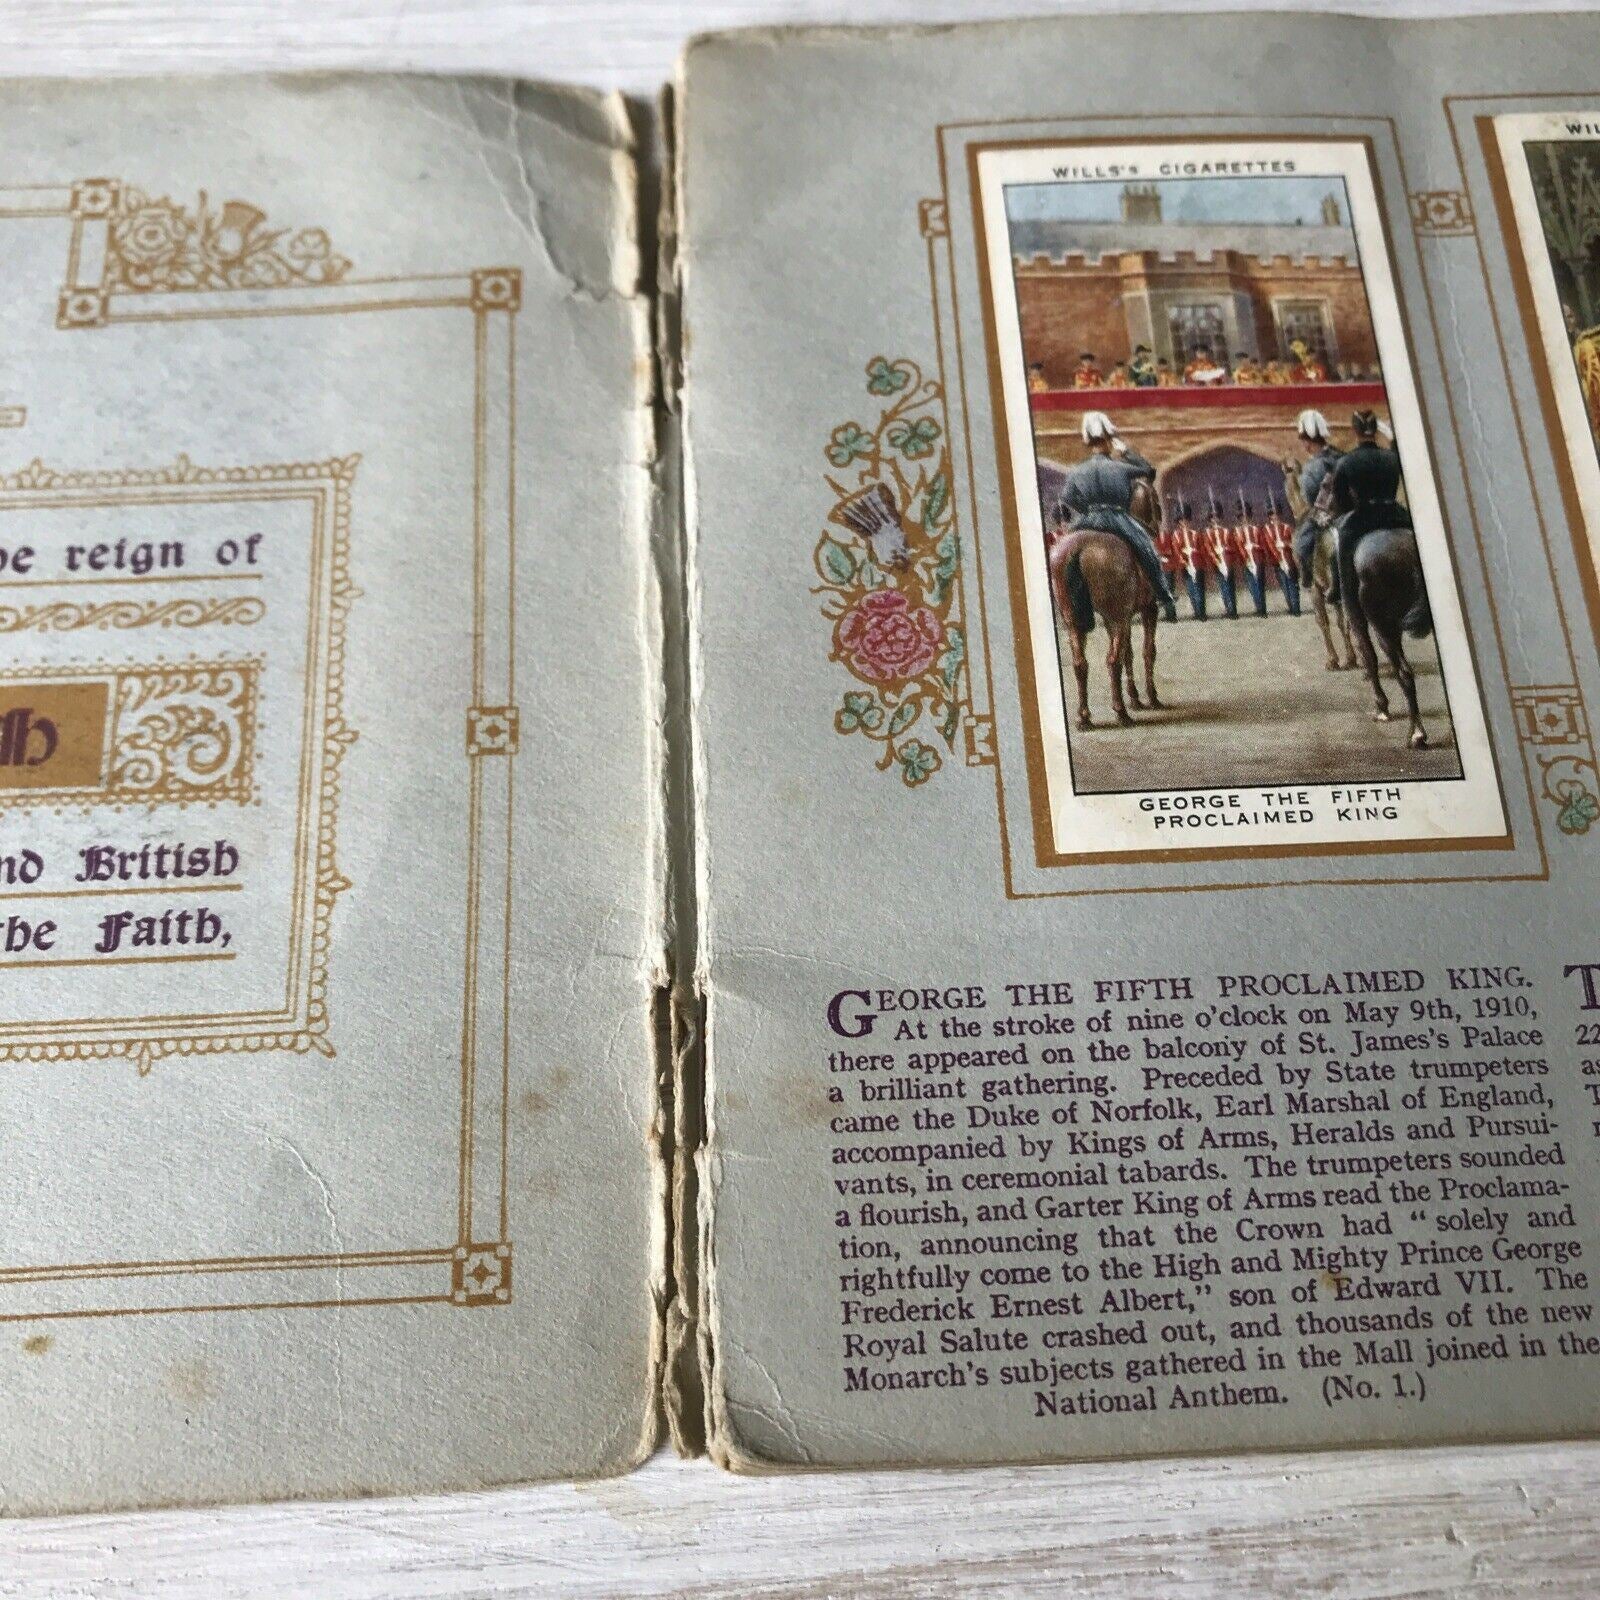 be reign of
nd British
the Faith,
WILLS'S CIGARETTES
GEORGE THE FIFTH
PROCLAIMED KING
GEORGE THE FIFTH PROCLAIMED KING.
At the stroke of nine o'clock on May 9th, 1910,
there appeared on the balcony of St. James's Palace
a brilliant gathering. Preceded by State trumpeters
came the Duke of Norfolk, Earl Marshal of England,
accompanied by Kings of Arms, Heralds and Pursui-
vants, in ceremonial tabards. The trumpeters sounded
a flourish, and Garter King of Arms read the Proclama-
tion, announcing that the Crown had "solely and
rightfully come to the High and Mighty Prince George
Frederick Ernest Albert," son of Edward VII. The
Royal Salute crashed out, and thousands of the new
Monarch's subjects gathered in the Mall joined in the
National Anthem. (No. 1.)
WIL
T
22
as
T